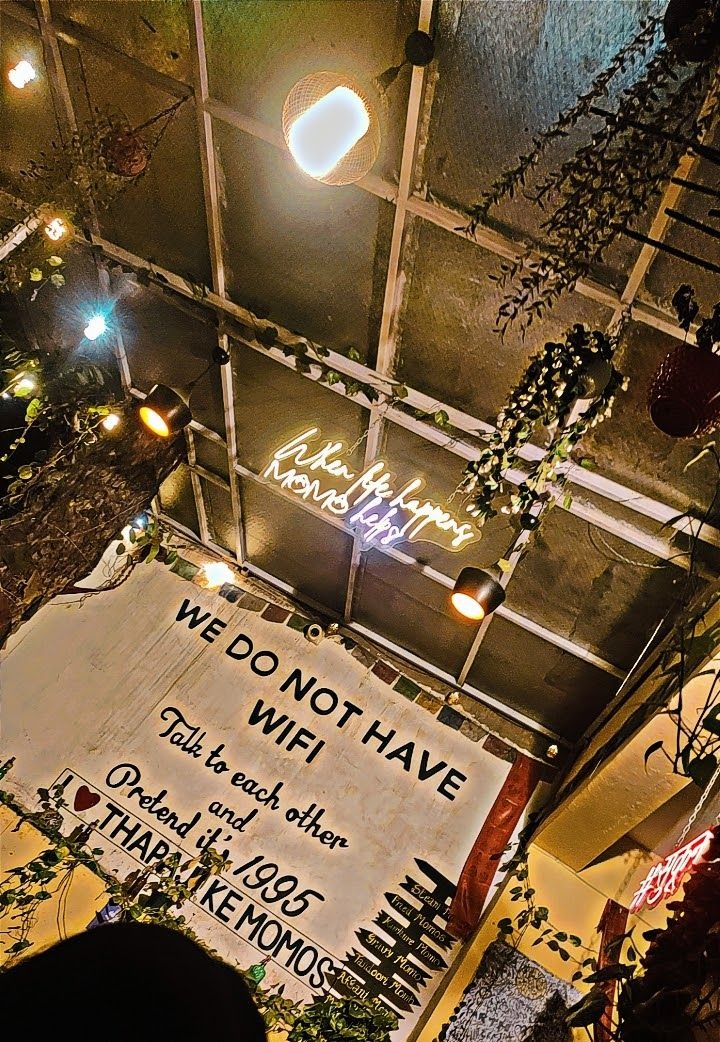 When life happens
MOMO helps
WE DO NOT HAVE
WIFI
Talk to each other
and
Pretend it's 1995
I ❤ THAPA KE MOMOS
Steam
Fried Momos
Kurkure Momo
Gravy Momo
Tandoori Momo
Afgani Momo